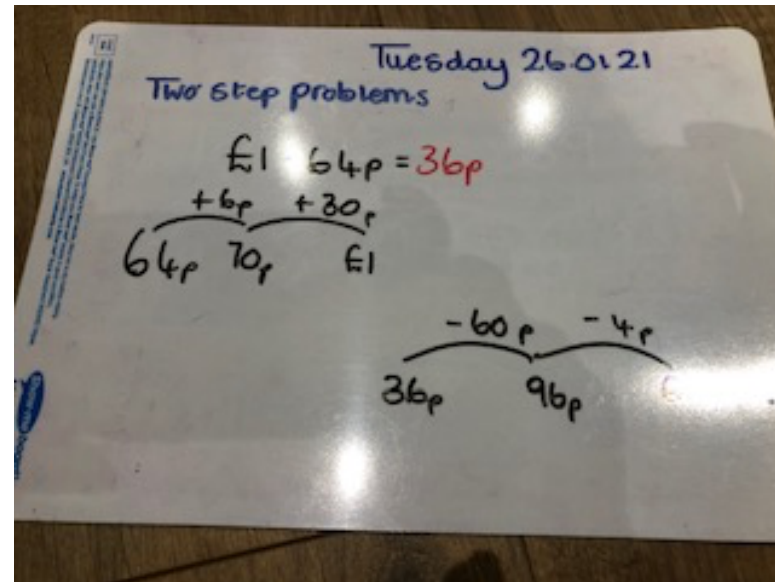 Tuesday 26.01.21
Two step problems
£1 64p = 36p
+6p +30p
64p 70p £1
-60p -4p
36p 96p